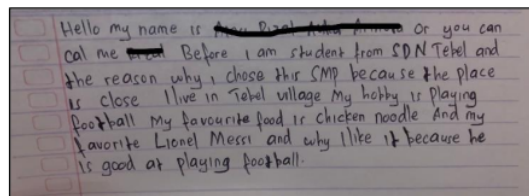 Hello my name is Or you can
cal me Before I am student from SDN Tebel and
the reason why i chose this SMP because the place
is close I live in Tebel village My hobby is playing
football My favourite food is chicken noodle And my
favorite Lionel Messi and why I like it because he
is good at playing football.